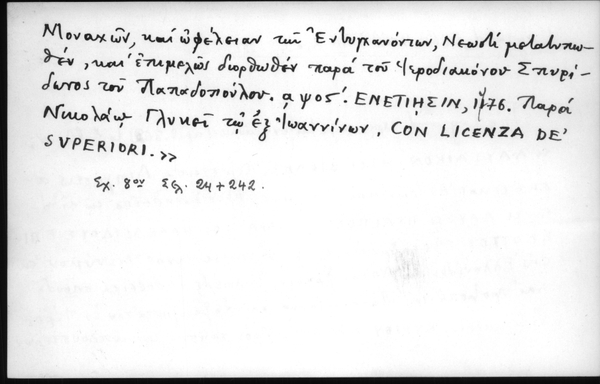 Μοναχῶν, καί ὠφέλειαν τῶν Ἐντυγχανόντων, Νεωστί μετατυπω-
θέν, καί ἐπιμελῶς διορθωθέν παρά τοῦ Ἱεροδιακόνου Σπυρί-
δωνος τοῦ Παπαδοπούλου. αψοϛ´. ΕΝΕΤΙῌΣΙΝ, 1776. Παρά
Νικολάῳ Γλυκεῖ τῷ ἐξ Ἰωαννίνων. CON LICENZA DE'
SUPERIORI.>>
Σχ. 8ον Σελ. 24+242.